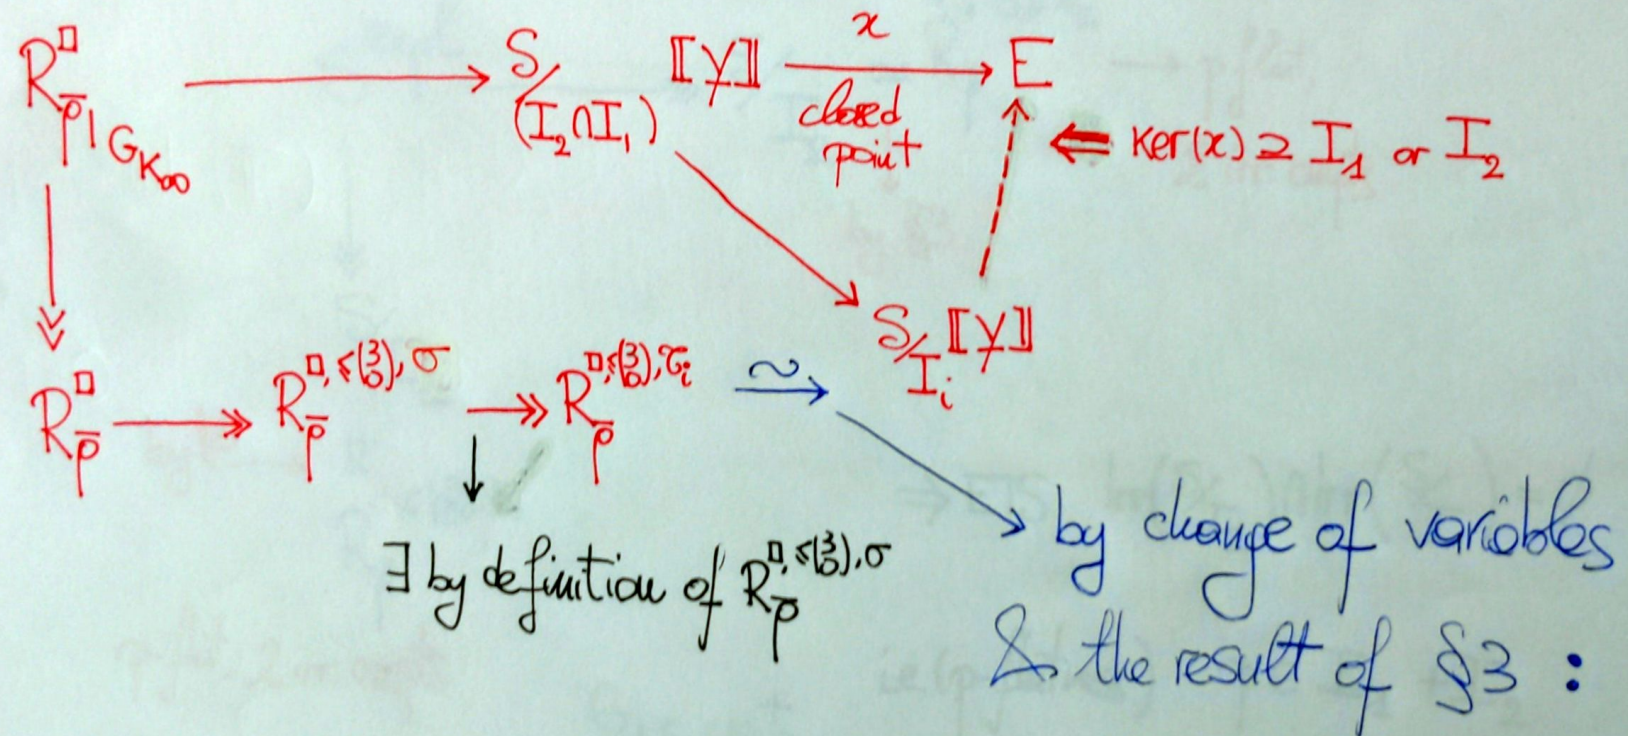 R^□_{ρ̄|G_{K_∞}} ⟶ S/(I₂∩I₁) ⟦Y⟧ ⟶ E
x
closed
point
⇐ Ker(x) ⊇ I₁ or I₂
S/I_i ⟦Y⟧
R^□_ρ̄ ↠ R^{□,≤(3 0),σ}_ρ̄ ↠ R^{□,≤(3 0),τ_i}_ρ̄ ⥲
∃ by definition of R^{□,≤(3 0),σ}_ρ̄
by change of variables
& the result of §3 :